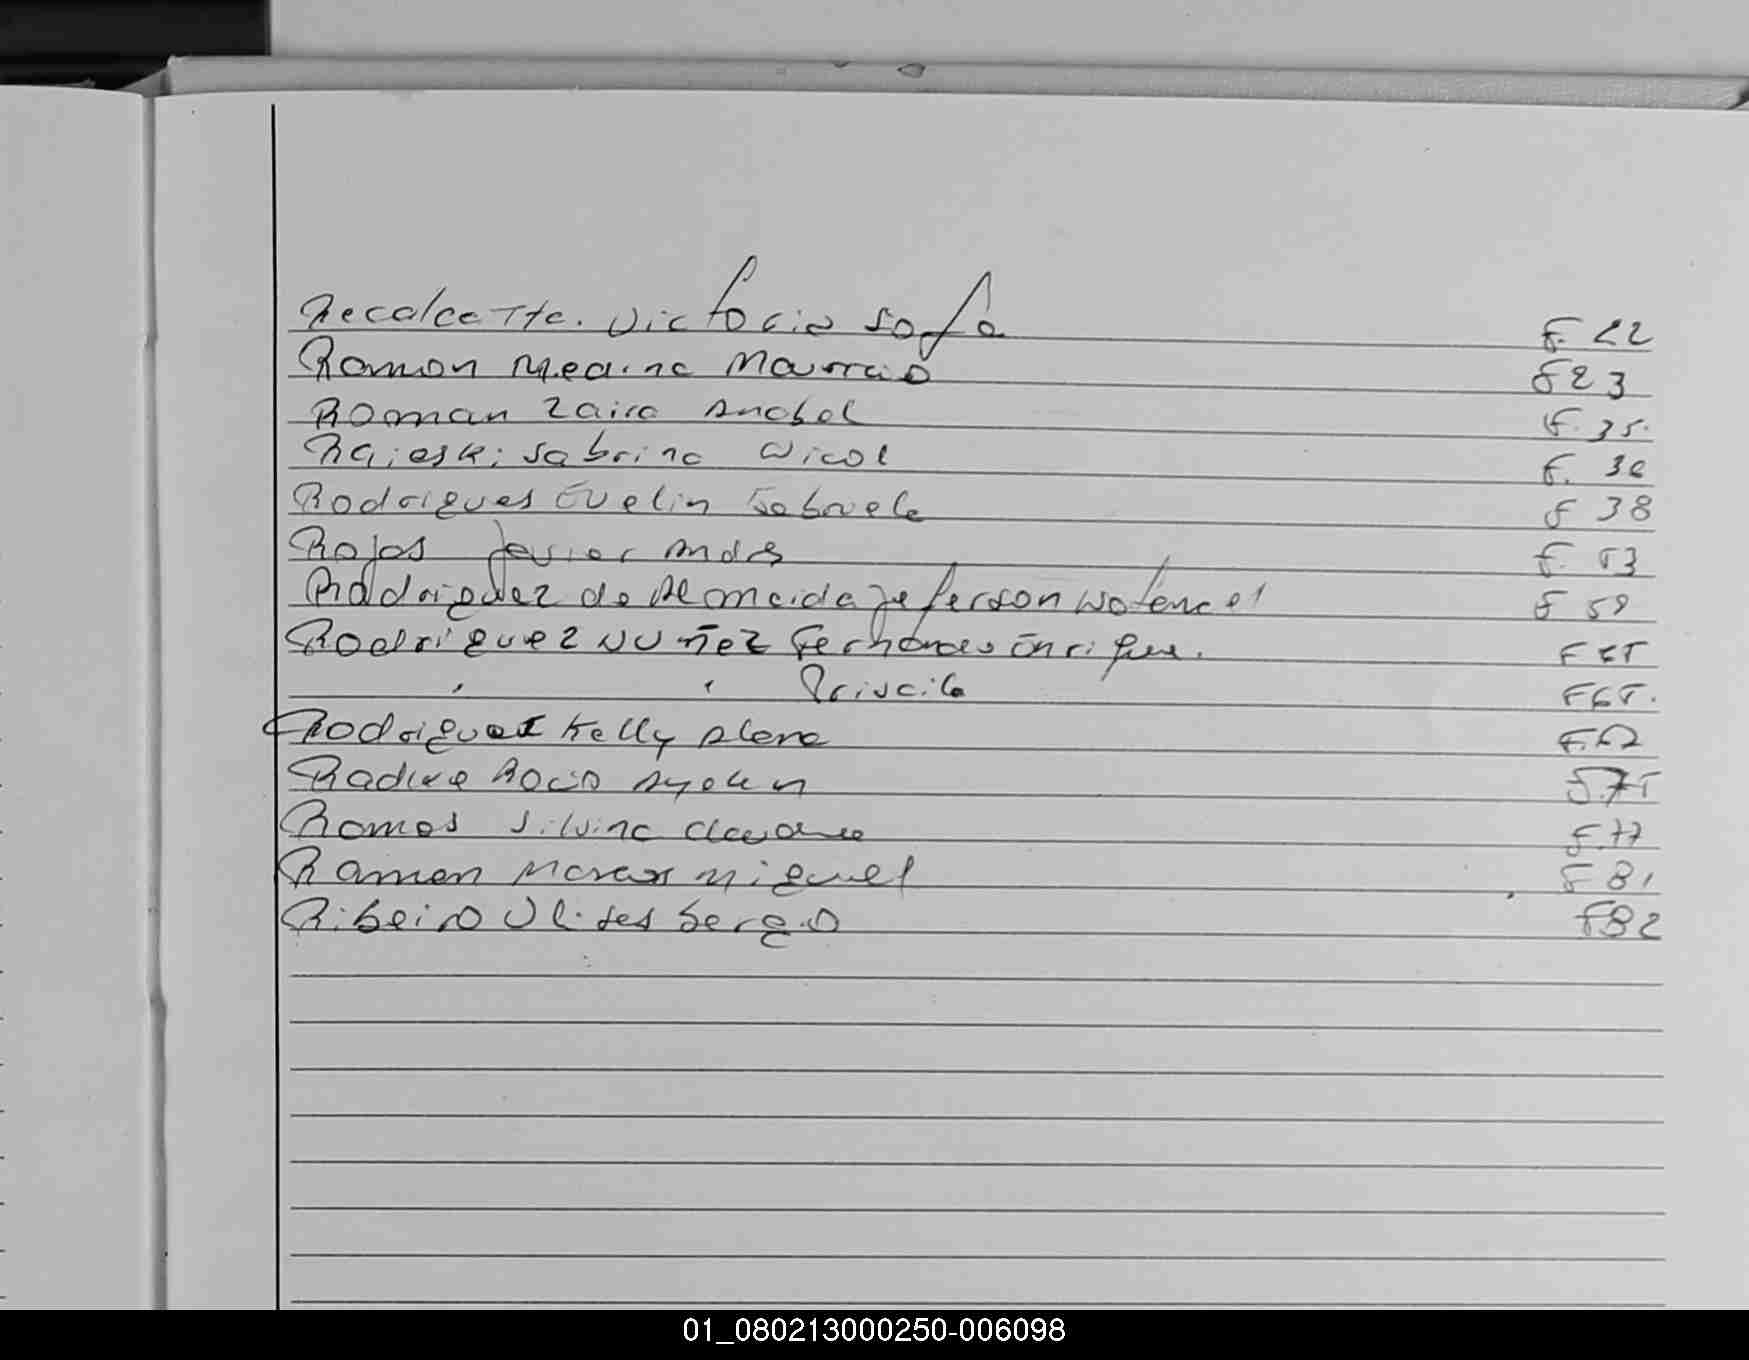 Recalcatte. Victoria Sofa F. 22
Ramon Medina Mauricio F 23
Roman Zaira Anabel F. 35.
Raieski Sabrina Nicol F. 36
Rodrigues Evelin Gabriele F 38
Rojos Javier F. 53
Radriguez de Almeida Jeferson F 59
Rodriguez Nuñez Fernando Enrique. F 65
" " Priscila F 65.
Rodriguez Kelly Alena F. 67
Rocio Ayelen F. 75
Ramos Silvina F. 77
Ramon Marcos Miguel F 81
Ribeiro Ulises Sergio F 82
01_080213000250-006098